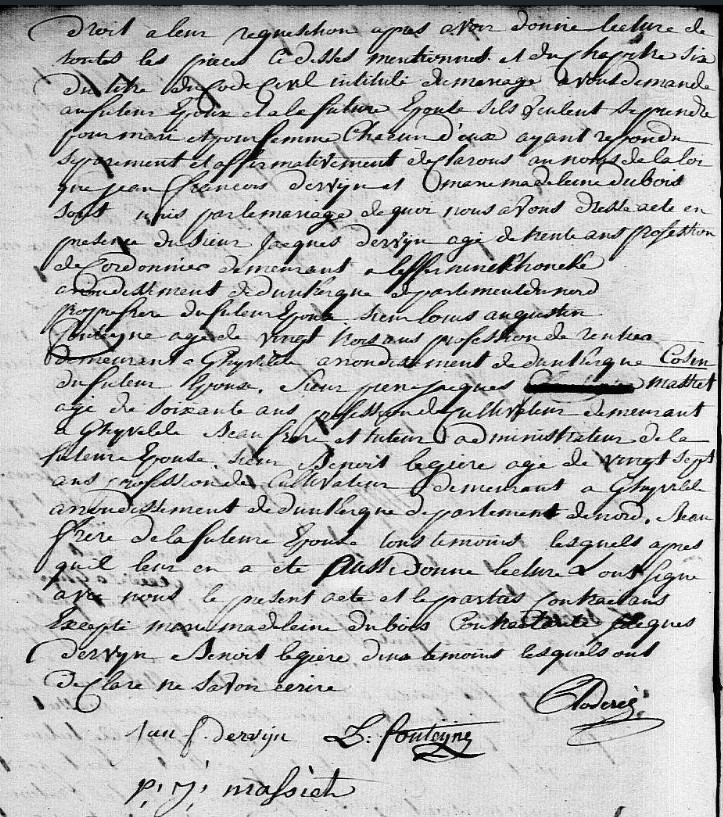 droit a leur requesition apres avoir donné lecture de
toutes les pieces ci desses mentionnes et du Chapitre six
du titre du Code Civil intitulé du mariage avons demandé
au futeur Epoux et a la future Epouse s'ils veulent se prendre
pour mari et pour femme Chacun d'eux ayant repondu
separement et affirmativement declarons au nom de la loi
que jean francois dervyn et marie madeleine dubois
sont unis par le mariage de quoi nous avons dressé acte en
presence du sieur jacques dervyn agé de trente ans profession
de Cordonnier demeurant a
arrondissement de dunkerque departement du nord
frere du futeur Epoux sieur louis augustin
fouteyne agé de vingt trois ans profession de rentier
demeurant a Ghyvelde arrondissement de dunkerque Cosin
du futeur Epouse. sieur pierre jacques massiet
agé de soixante ans profession de Cultivateur demeurant
a Ghyvelde Beau frere et tuteur administrateur de la
futeure Epouse. sieur Benoit legiere agé de vingt sept
ans profession de Cultivateur demeurant a Ghyvelde
arrondissement de dunkerque departement de nord. Beau
frere de la futeure Epouse tous temoins lesquels apres
qu'il leur en a eté aussi donné lecture ont signé
avec nous le present acte et le parties Contractans
Excepté marie madeleine dubois Contractante jacques
dervyn Benoit legiere deux temoins lesquels ont
declaré ne savoir ecrire
jan f. dervyn L: fouteyne
p: j: massiet